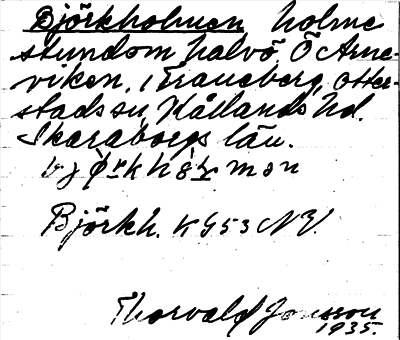 Björkholmen holme
stundom halvö Ö Arne-
viken, Traneberg, Otter-
stads sn, Kållands hd.
Skaraborgs län.
Björkh. K G 53 NV.
Thorvald Jonsson
1935.